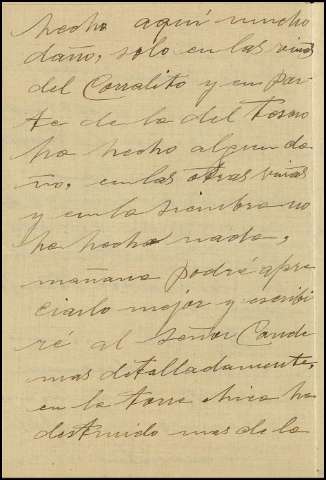 hecho aquí mucho
daño, solo en las viñas
del Corralito y en par
te de la del Torno
ha hecho algun da
ño, en las otras viñas
y en la siembra no
ha hecho nada,
mañana podré apre
ciarlo mejor y escribi
ré al Señor Conde
mas detalladamente,
en la torre chica ha
destruido mas de la